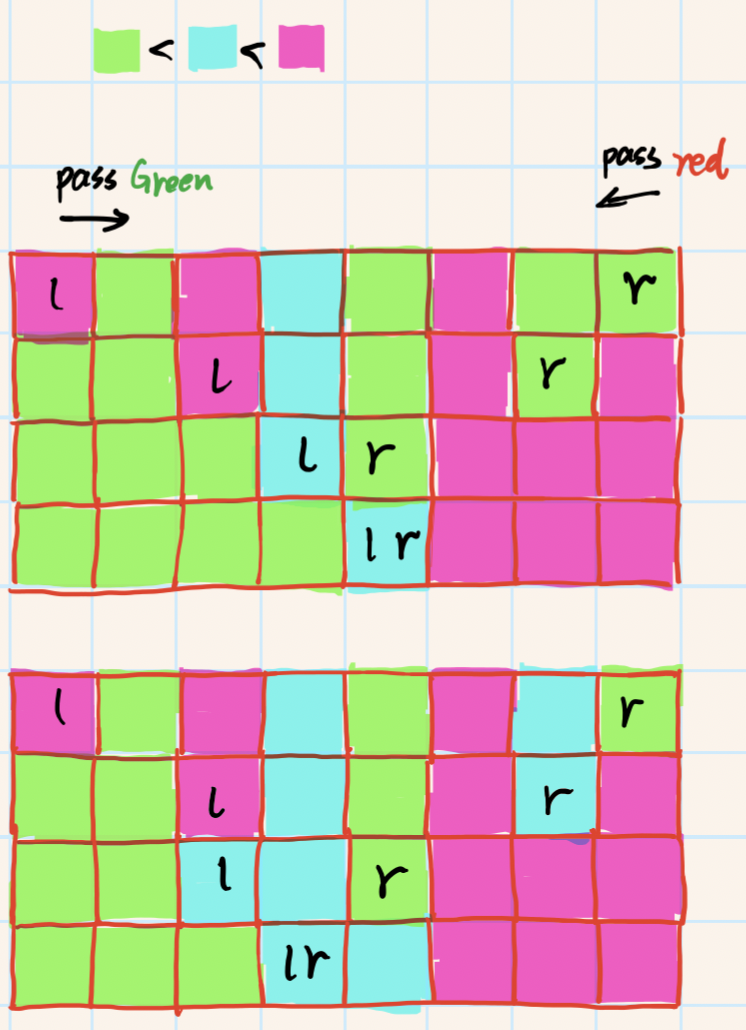 < <
pass Green
pass red
l r
l r
l r
l r
l r
l r
l r
l r